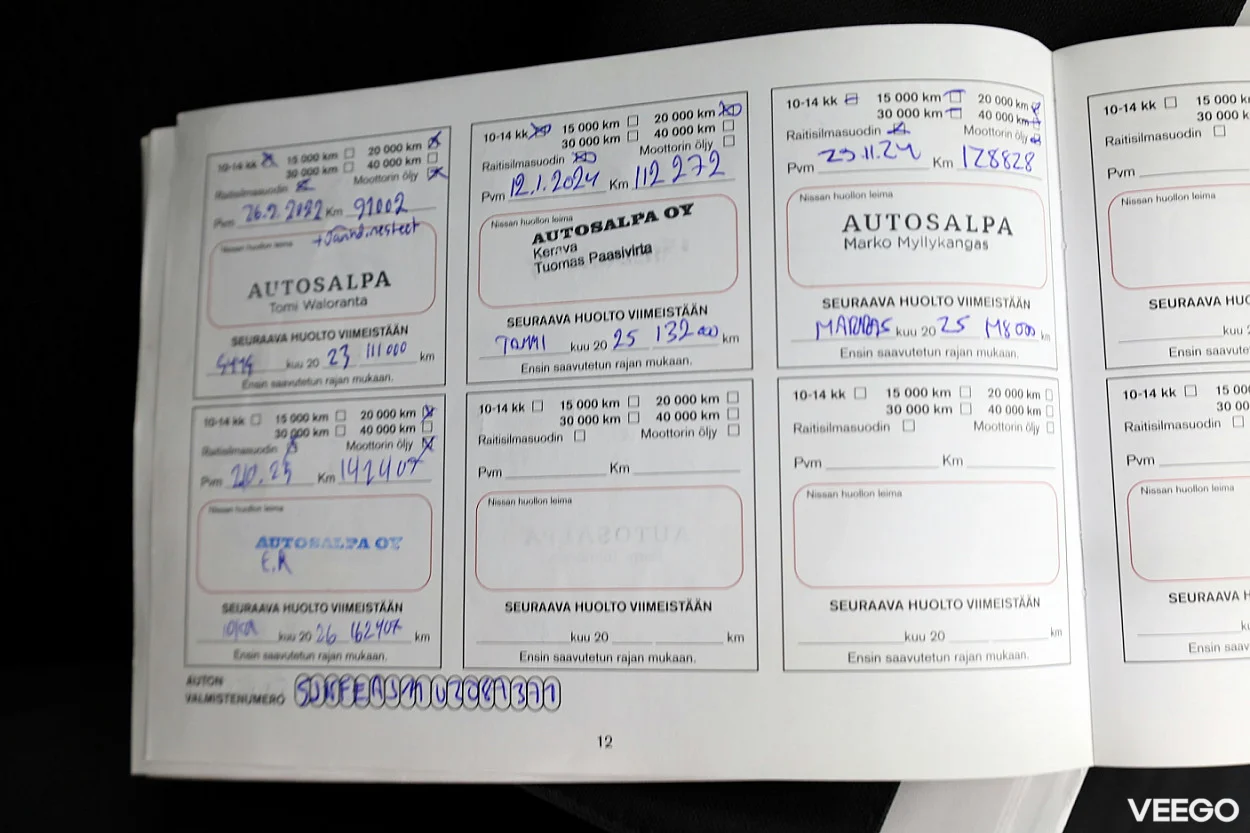 10-14 kk 15 000 km 20 000 km
30 000 km 40 000 km
Raitisilmasuodin Moottorin öljy
Pvm 26.9.2022 Km 91002
Nissan huollon leima
AUTOSALPA
Tomi Waloranta
SEURAAVA HUOLTO VIIMEISTÄÄN
kuu 20 23 111000 km
Ensin saavutetun rajan mukaan.
10-14 kk 15 000 km 20 000 km
30 000 km 40 000 km
Raitisilmasuodin Moottorin öljy
Pvm 12.1.2024 Km 112 272
Nissan huollon leima
AUTOSALPA OY
Kerava
Tuomas Paasivirta
SEURAAVA HUOLTO VIIMEISTÄÄN
TAMMI kuu 20 25 132 000 km
Ensin saavutetun rajan mukaan.
10-14 kk 15 000 km 20 000 km
30 000 km 40 000 km
Raitisilmasuodin Moottorin öljy
Pvm 25.11.24 Km 128828
Nissan huollon leima
AUTOSALPA
Marko Myllykangas
SEURAAVA HUOLTO VIIMEISTÄÄN
MARRAS kuu 20 25 148 000 km
Ensin saavutetun rajan mukaan.
10-14 kk 15 000 k
30 00
Raitisilmasuodin
Pvm
Nissan huollon leima
SEURAAVA HU
kuu 2
Ensin saavute
10-14 kk 15 000 km 20 000 km
30 000 km 40 000 km
Raitisilmasuodin Moottorin öljy
Pvm Km 142407
Nissan huollon leima
AUTOSALPA OY
E.R
SEURAAVA HUOLTO VIIMEISTÄÄN
loka kuu 20 26 162407 km
Ensin saavutetun rajan mukaan.
10-14 kk 15 000 km 20 000 km
30 000 km 40 000 km
Raitisilmasuodin Moottorin öljy
Pvm Km
Nissan huollon leima
SEURAAVA HUOLTO VIIMEISTÄÄN
kuu 20 km
Ensin saavutetun rajan mukaan.
10-14 kk 15 000 km 20 000 km
30 000 km 40 000 km
Raitisilmasuodin Moottorin öljy
Pvm Km
Nissan huollon leima
SEURAAVA HUOLTO VIIMEISTÄÄN
kuu 20 km
Ensin saavutetun rajan mukaan.
10-14 kk 15 00
30 0
Raitisilmasuodin
Pvm
Nissan huollon leima
SEURAAVA H
kuu
Ensin saavut
AUTON
VALMISTENUMERO
12
VEEGO